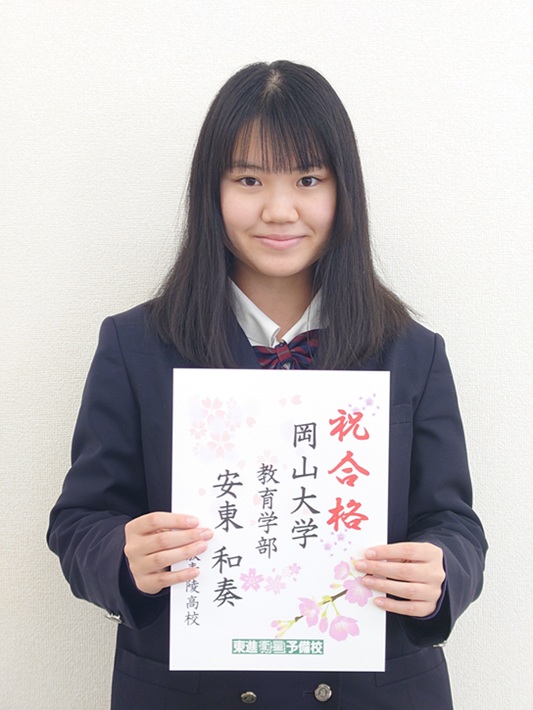 祝合格
岡山大学
教育学部
安東 和奏
陵高校
東進衛星予備校